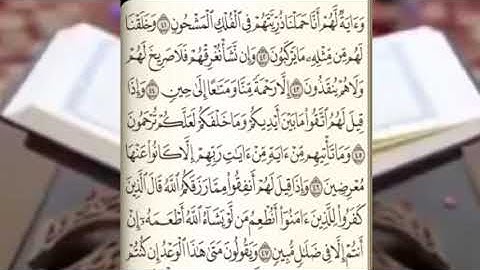 وَءَايَةٌ لَّهُمْ أَنَّا حَمَلْنَا ذُرِّيَّتَهُمْ فِى ٱلْفُلْكِ ٱلْمَشْحُونِ ٤١ وَخَلَقْنَا
لَهُم مِّن مِّثْلِهِۦ مَا يَرْكَبُونَ ٤٢ وَإِن نَّشَأْ نُغْرِقْهُمْ فَلَا صَرِيخَ لَهُمْ
وَلَا هُمْ يُنقَذُونَ ٤٣ إِلَّا رَحْمَةً مِّنَّا وَمَتَٰعًا إِلَىٰ حِينٍ ٤٤ وَإِذَا
قِيلَ لَهُمُ ٱتَّقُوا۟ مَا بَيْنَ أَيْدِيكُمْ وَمَا خَلْفَكُمْ لَعَلَّكُمْ تُرْحَمُونَ
٤٥ وَمَا تَأْتِيهِم مِّنْ ءَايَةٍ مِّنْ ءَايَٰتِ رَبِّهِمْ إِلَّا كَانُوا۟ عَنْهَا
مُعْرِضِينَ ٤٦ وَإِذَا قِيلَ لَهُمْ أَنفِقُوا۟ مِمَّا رَزَقَكُمُ ٱللَّهُ قَالَ ٱلَّذِينَ
كَفَرُوا۟ لِلَّذِينَ ءَامَنُوٓا۟ أَنُطْعِمُ مَن لَّوْ يَشَآءُ ٱللَّهُ أَطْعَمَهُۥٓ إِنْ
أَنتُمْ إِلَّا فِى ضَلَٰلٍ مُّبِينٍ ٤٧ وَيَقُولُونَ مَتَىٰ هَٰذَا ٱلْوَعْدُ إِن كُنتُمْ